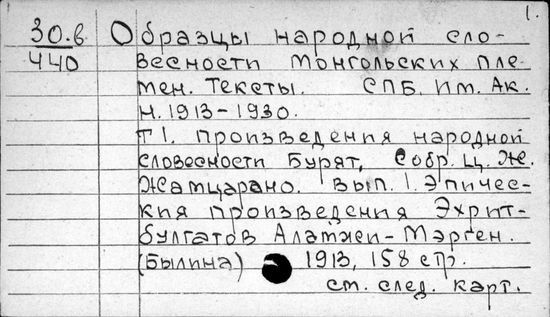 1.
30.в Образцы народной сло-
440 весности монгольских пле-
мен. Тексты. СПБ. Им. Ак.
Н. 1913-1930.
Т I. Произведения народной
словесности Бурят, Собр. Ц. Ж.
Жамцарано. Вып. I. Эпичес-
кия произведения Эхрит-
булгатов Аламжи-Мэрген.
(Былина) 1913, 158 стр.
см. след. карт.